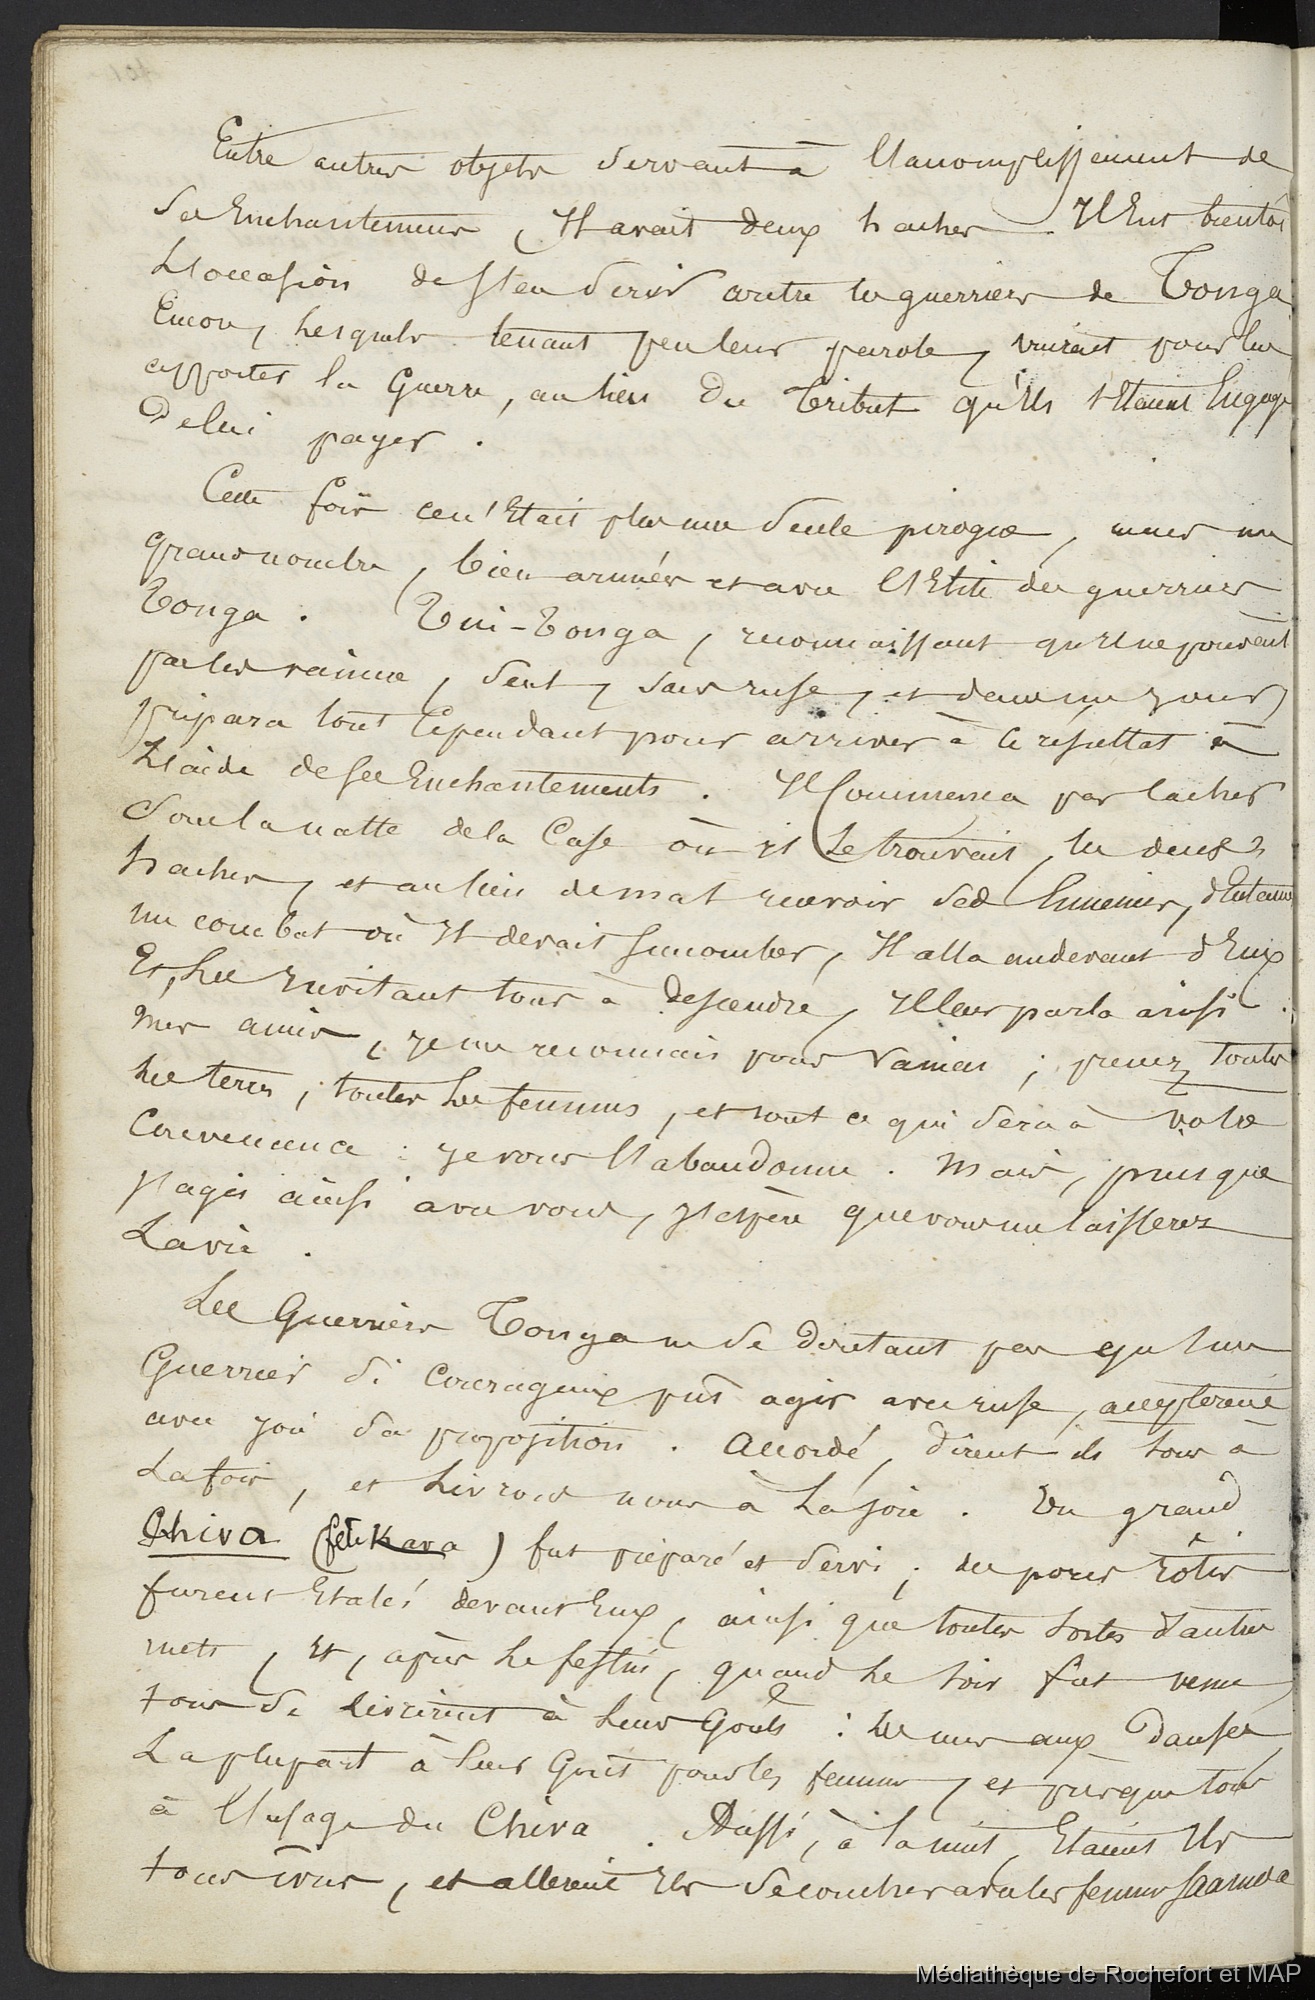 Entre autres objets servant à l'accomplissement de
ses Enchantements, Il avait deux haches. Il Eut bientôt
L'occasion de s'en servir contre les guerriers de Tonga
Encor, lesquels tenant peu leur parole, vinrent pour lui
apporter la Guerre, au lieu du Tribut qu'ils s'Etaient Engagé
De lui payer.
Cette fois ce n'Etait plus une seule pirogue, mais un
grand nombre, bien armées et avec l'Elite des guerriers
Tonga. Tui-Tonga, reconnaissant qu'Il ne pouvait
pas les vaincre, seul, sans ruse, et dans un jour,
prépara tout Cependant pour arriver à ce résultat à
L'aide de ses Enchantements. Il Commença par cacher
Sous la natte de la Case où il se trouvait, les deux
haches, et au lieu de mal recevoir ses Ennemis,
un combat où Il devait succomber, Il alla audevant d'Eux
Et, les Invitant tous à descendre, Il leur parla ainsi :
Mes amis, je me reconnais pour Vaincu ; prenez toutes
les terres, toutes les femmes, et tout ce qui sera à votre
Convenance : je vous l'abandonne. Mais, puisque
j'agis ainsi avec vous, j'espère que vous me laisserez
La vie.
Les Guerriers Tonga ne se doutant pas qu'un
Guerrier si Courageux pût agir avec ruse, acceptèrent
avec joie sa proposition. Accordé, dirent ils tous à
La fois, et Livrons nous à La joie. Un grand
Chiva (fête Kava) fut préparé et servi ; des porcs rôtis
furent Etalés devant Eux, ainsi que toutes sortes d'autres
mets, Et, après le festin, quand le soir fut venu,
tous se livrèrent à leurs Goûts : les uns aux Danses,
La plupart à leur Goût pour les femmes, et presque tous
à l'usage du Chiva. Aussi, à la nuit, Etaient Ils
tous ivres, et allèrent Ils se coucher avec les femmes
Médiathèque de Rochefort et MAP